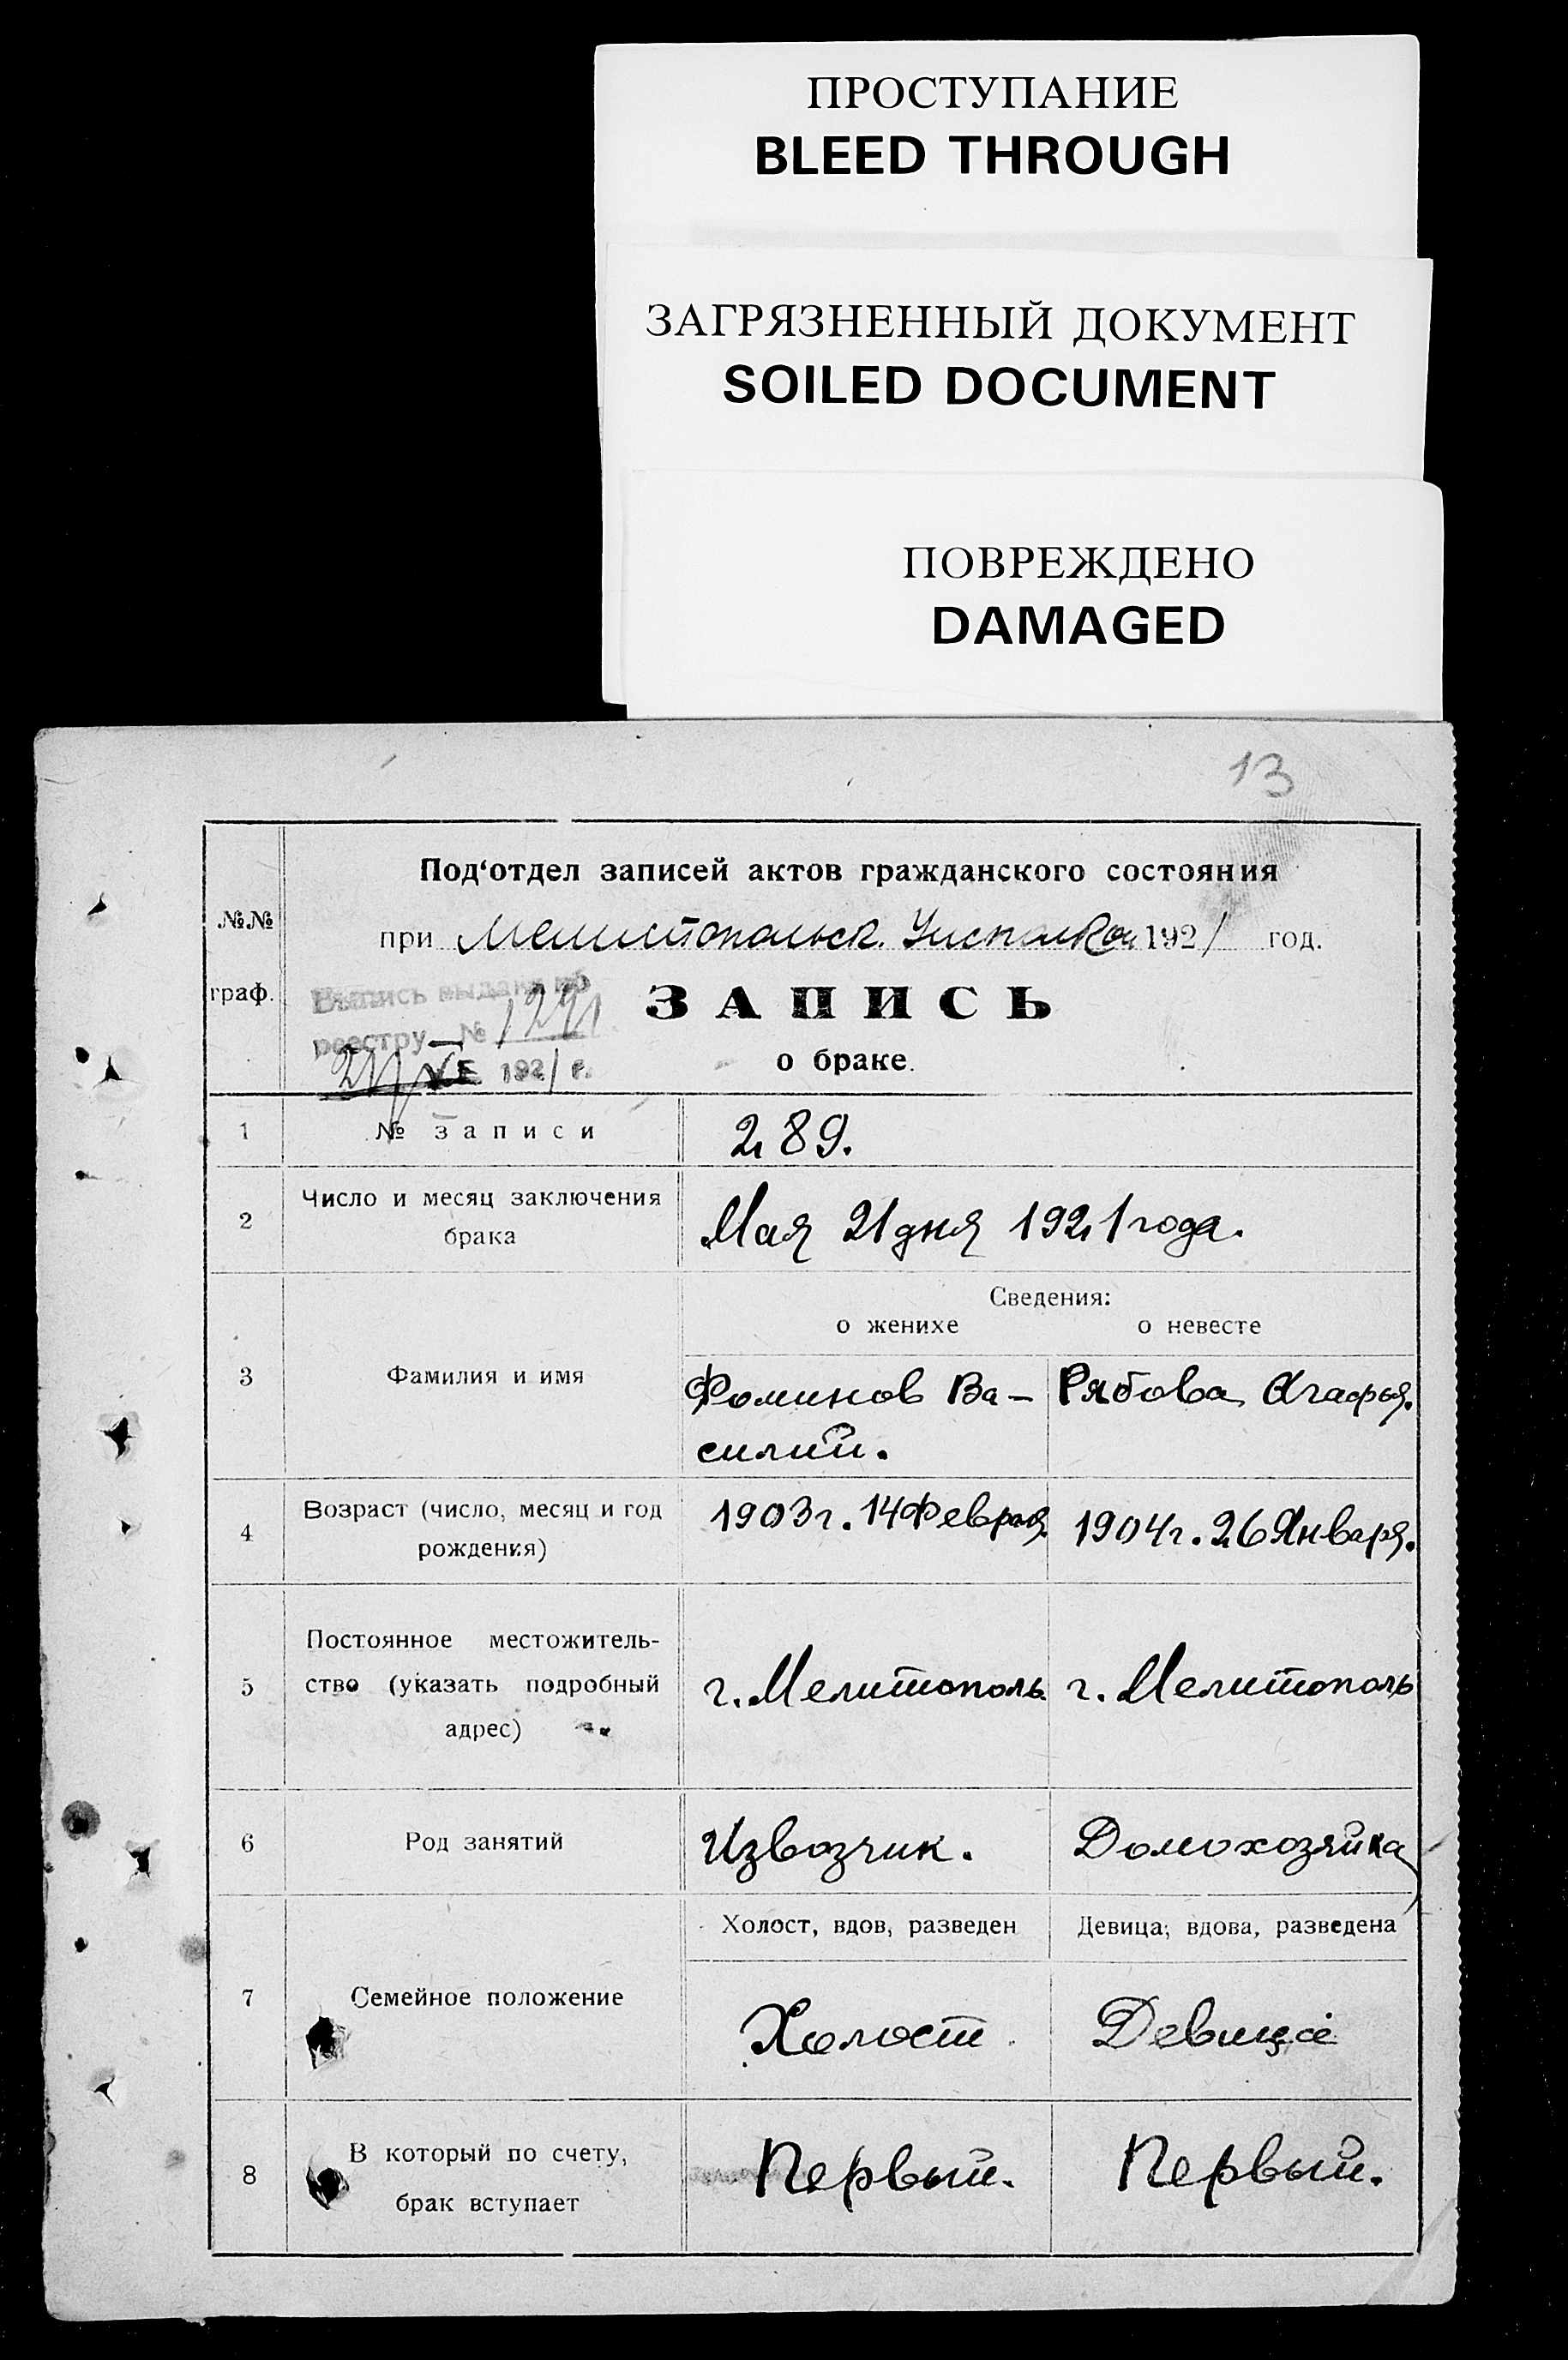 ПРОСТУПАНИЕ
BLEED THROUGH
ЗАГРЯЗНЕННЫЙ ДОКУМЕНТ
SOILED DOCUMENT
ПОВРЕЖДЕНО
DAMAGED
13
Под‘отдел записей актов гражданского состояния
№№
граф.
при Мелитопольск. 1921 год.
Выпись выдана по
реестру №
ЗАПИСЬ
о браке.
VI 1921 г.
1 № записи 289.
2 Число и месяц заключения
брака
Мая 21 дня 1921 года.
Сведения:
о женихе о невесте
3 Фамилия и имя
Фоминов Ва- Рябова Агафья.
силий.
4 Возраст (число, месяц и год
рождения)
1903 г. 14 Февраля. 1904 г. 26 Января.
5 Постоянное местожитель-
ство (указать подробный
адрес)
г. Мелитополь г. Мелитополь
6 Род занятий Извозчик. Домохозяйка
Холост, вдов, разведен Девица, вдова, разведена
7 Семейное положение
Холост Девица
8 В который по счету,
брак вступает
Первый. Первый.